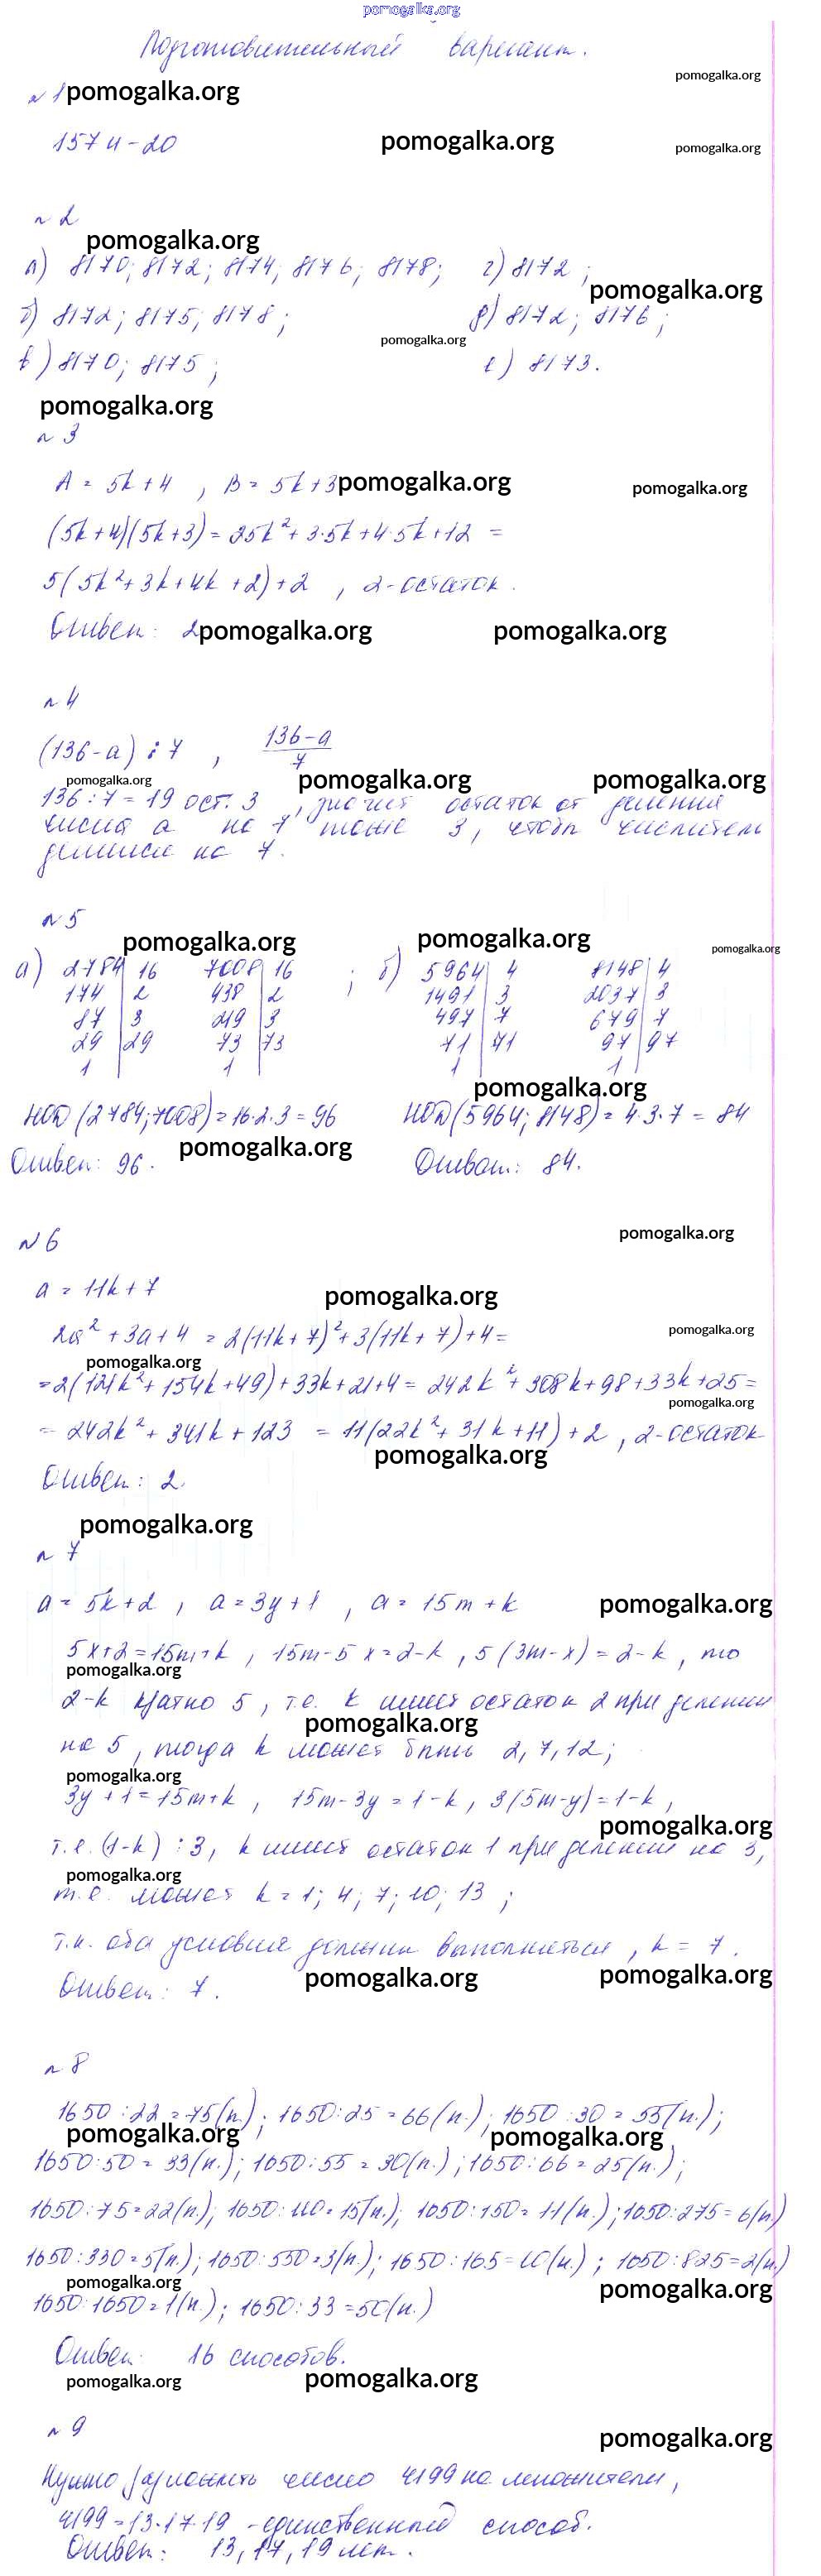 pomogalka.org
Подготовительный вариант.
pomogalka.org
№ 1 pomogalka.org
157 и -20 pomogalka.org pomogalka.org
№ 2
pomogalka.org
а) 8170; 8172; 8174; 8176; 8178; г) 8172;
pomogalka.org
б) 8172; 8175; 8178; д) 8172; 8176;
pomogalka.org
в) 8170; 8175; е) 8173.
pomogalka.org
№ 3
A = 5k+4, B = 5k+3 pomogalka.org pomogalka.org
(5k+4)(5k+3) = 25k²+3·5k+4·5k+12 =
5(5k²+3k+4k+2)+2, 2-остаток.
Ответ: 2 pomogalka.org pomogalka.org
№ 4
(136-a) ⋮ 7, (136-a)/7
pomogalka.org pomogalka.org pomogalka.org
136:7=19 ост. 3, значит остаток от деления
числа a на 7 тоже 3, чтобы числитель
делился на 7.
№ 5
pomogalka.org pomogalka.org pomogalka.org
а) 2784|16 7008|16 ; б) 5964|4 8148|4
174|2 438|2 1491|3 2037|3
87|3 219|3 497|7 679|7
29|29 73|73 71|71 97|97
1| 1| 1| 1|
pomogalka.org
НОД(2784;7008)=16·2·3=96 НОД(5964;8148)=4·3·7=84
Ответ: 96. pomogalka.org Ответ: 84.
№ 6 pomogalka.org
a = 11k+7
pomogalka.org
2a²+3a+4 = 2(11k+7)²+3(11k+7)+4= pomogalka.org
pomogalka.org
=2(121k²+154k+49)+33k+21+4= 242k²+308k+98+33k+25=
pomogalka.org
= 242k²+341k+123 = 11(22k²+31k+11)+2, 2-остаток
pomogalka.org
Ответ: 2.
pomogalka.org
№ 7
a = 5k+2, a=3y+1, a=15m+k pomogalka.org
5x+2=15m+k, 15m-5x=2-k, 5(3m-x)=2-k, то
pomogalka.org
2-k кратно 5, т.е. k имеет остаток 2 при делении
pomogalka.org
на 5, тогда k может быть 2, 7, 12;
pomogalka.org
3y+1=15m+k, 15m-3y=1-k, 3(5m-y)=1-k,
pomogalka.org
т.е. (1-k) ⋮ 3, k имеет остаток 1 при делении на 3,
pomogalka.org
т.е. может k = 1; 4; 7; 10; 13;
т.к. оба условия должны выполняться, k = 7.
pomogalka.org pomogalka.org
Ответ: 7.
№ 8
1650:22=75(п.); 1650:25=66(п.); 1650:30=55(п.);
pomogalka.org pomogalka.org
1650:50=33(п.); 1650:55=30(п.); 1650:66=25(п.);
1650:75=22(п.); 1650:110=15(п.); 1650:150=11(п.); 1650:275=6(п.)
1650:330=5(п.); 1650:550=3(п.); 1650:165=10(п.); 1650:825=2(п.)
pomogalka.org pomogalka.org
1650:1650=1(п.); 1650:33=50(п.)
Ответ: 16 способов.
pomogalka.org pomogalka.org
№ 9
pomogalka.org
Нужно разложить число 4199 на множители,
4199=13·17·19 - единственный способ.
Ответ: 13, 17, 19 лет.